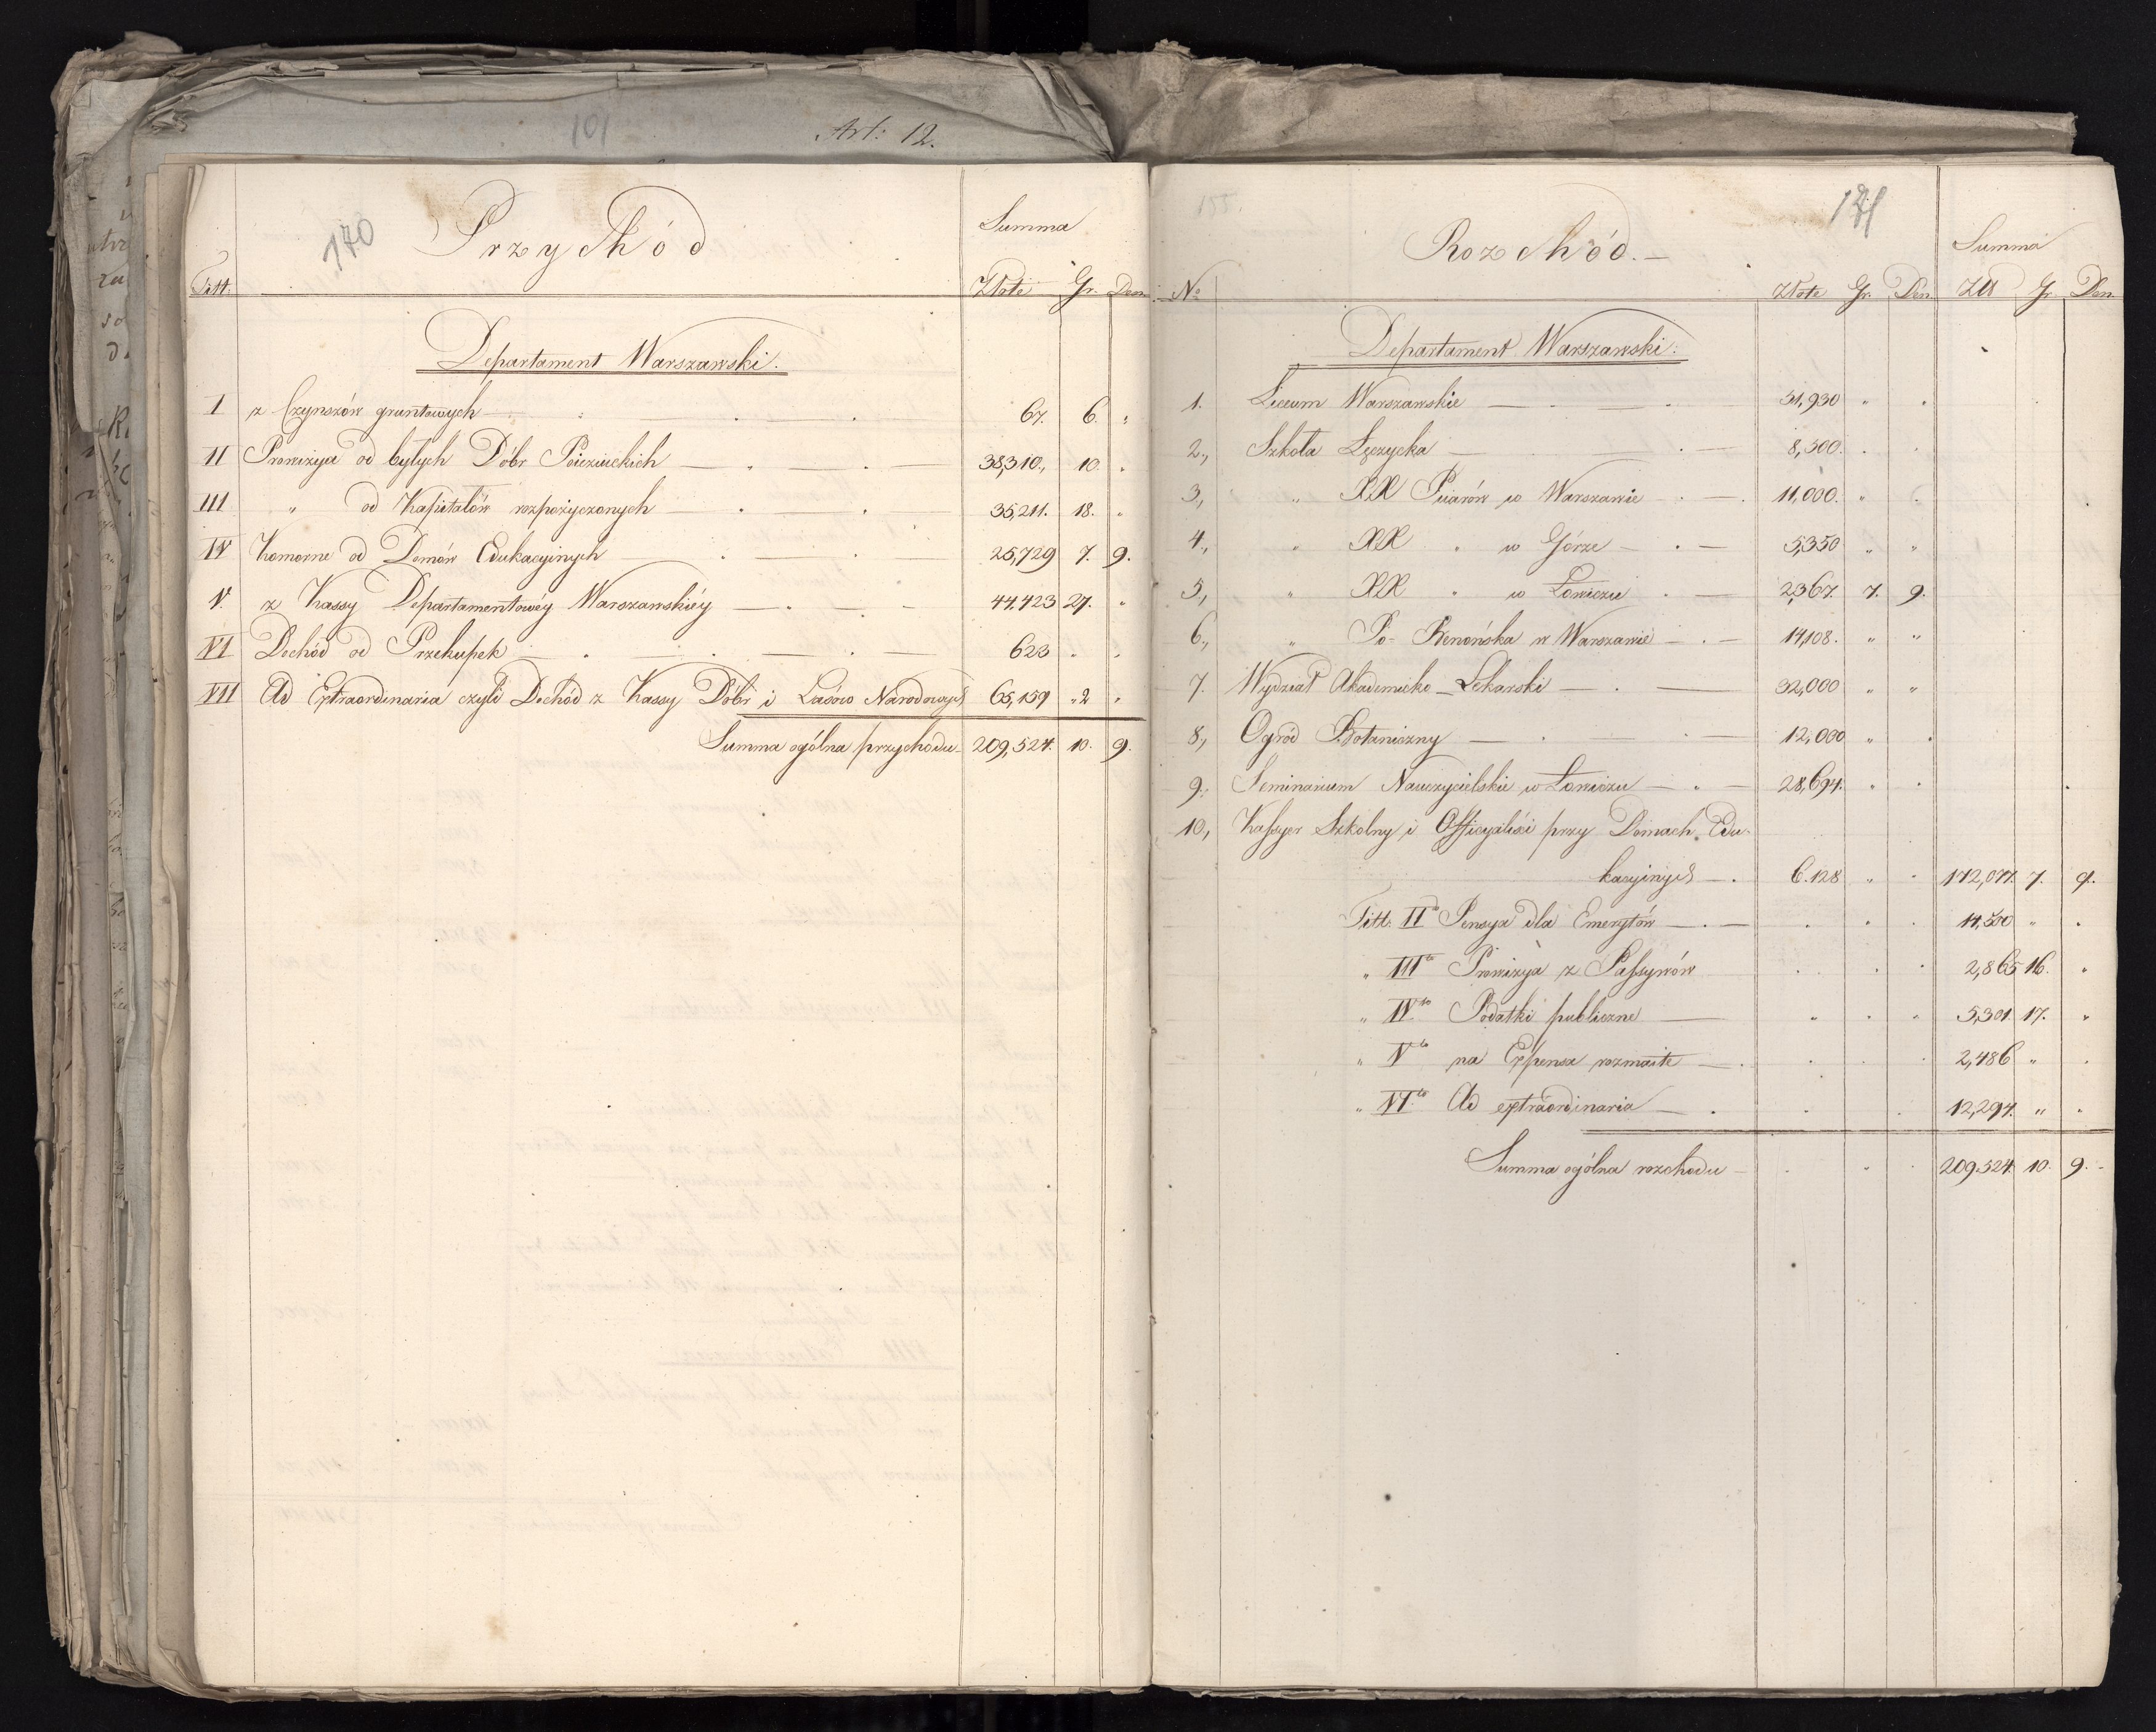 Art: 12.
101
170
Przychód
Summa
Titt: Złote Gr. Den.
Departament Warszawski.
I z Czynszów gruntowych 67. 6. „
II Prowizya od byłych Dóbr Pojezuickich 38,310., 10. „
III „ od Kapitałów rozpożyczonych 35,211. 18. „
IV Komorne od Domów Edukacyinych 25,729 7. 9.
V. z Kassy Departamentowéy Warszawskiéy 44,423 27. „
VI Dochód od Przekupek 623 „ „
VII Ad Extraordinaria czyli Dochód z Kassy Dóbr i Lasów Narodowych 65,159 „2 „
Summa ogólna przychodu 209,524. 10. 9.
155.
171
Rozchód.
Summa
No Złote Gr. Den. Złł Gr Den.
Departament Warszawski.
1. Liceum Warszawskie 51,930 „ „
2., Szkoła Łęczycka 8,500. „ „
3., „ XX Piiarów w Warszawie 11,000. „ „
4., „ XX „ w Górze 5,350 „ „
5., „ XX „ w Łowiczu 2,367. 7. 9.
6., „ Po-Benońska w Warszawie 14,108. „ „
7. Wydział Akademicko-Lekarski 32,000 „ „
8., Ogród Botaniczny 12,000 „ „
9. Seminarium Nauczycielskie w Łowiczu 28,694. „ „
10., Kassyer Szkolny i Officyaliści przy Domach Edu-
kacyinych 6.128 „ „ 172,077. 7. 9.
Titt. IIo Pensya dla Emerytów 14,500 „ „
„ IIIto Prowizya z Passywów 2,865 16. „
„ IVto Podatki publiczne 5,301. 17. „
„ Vto na Expensa rozmaite 2,486 „ „
„ VIto Ad extraordinaria 12,294. „ „
Summa ogólna rozchodu 209.524. 10. 9.